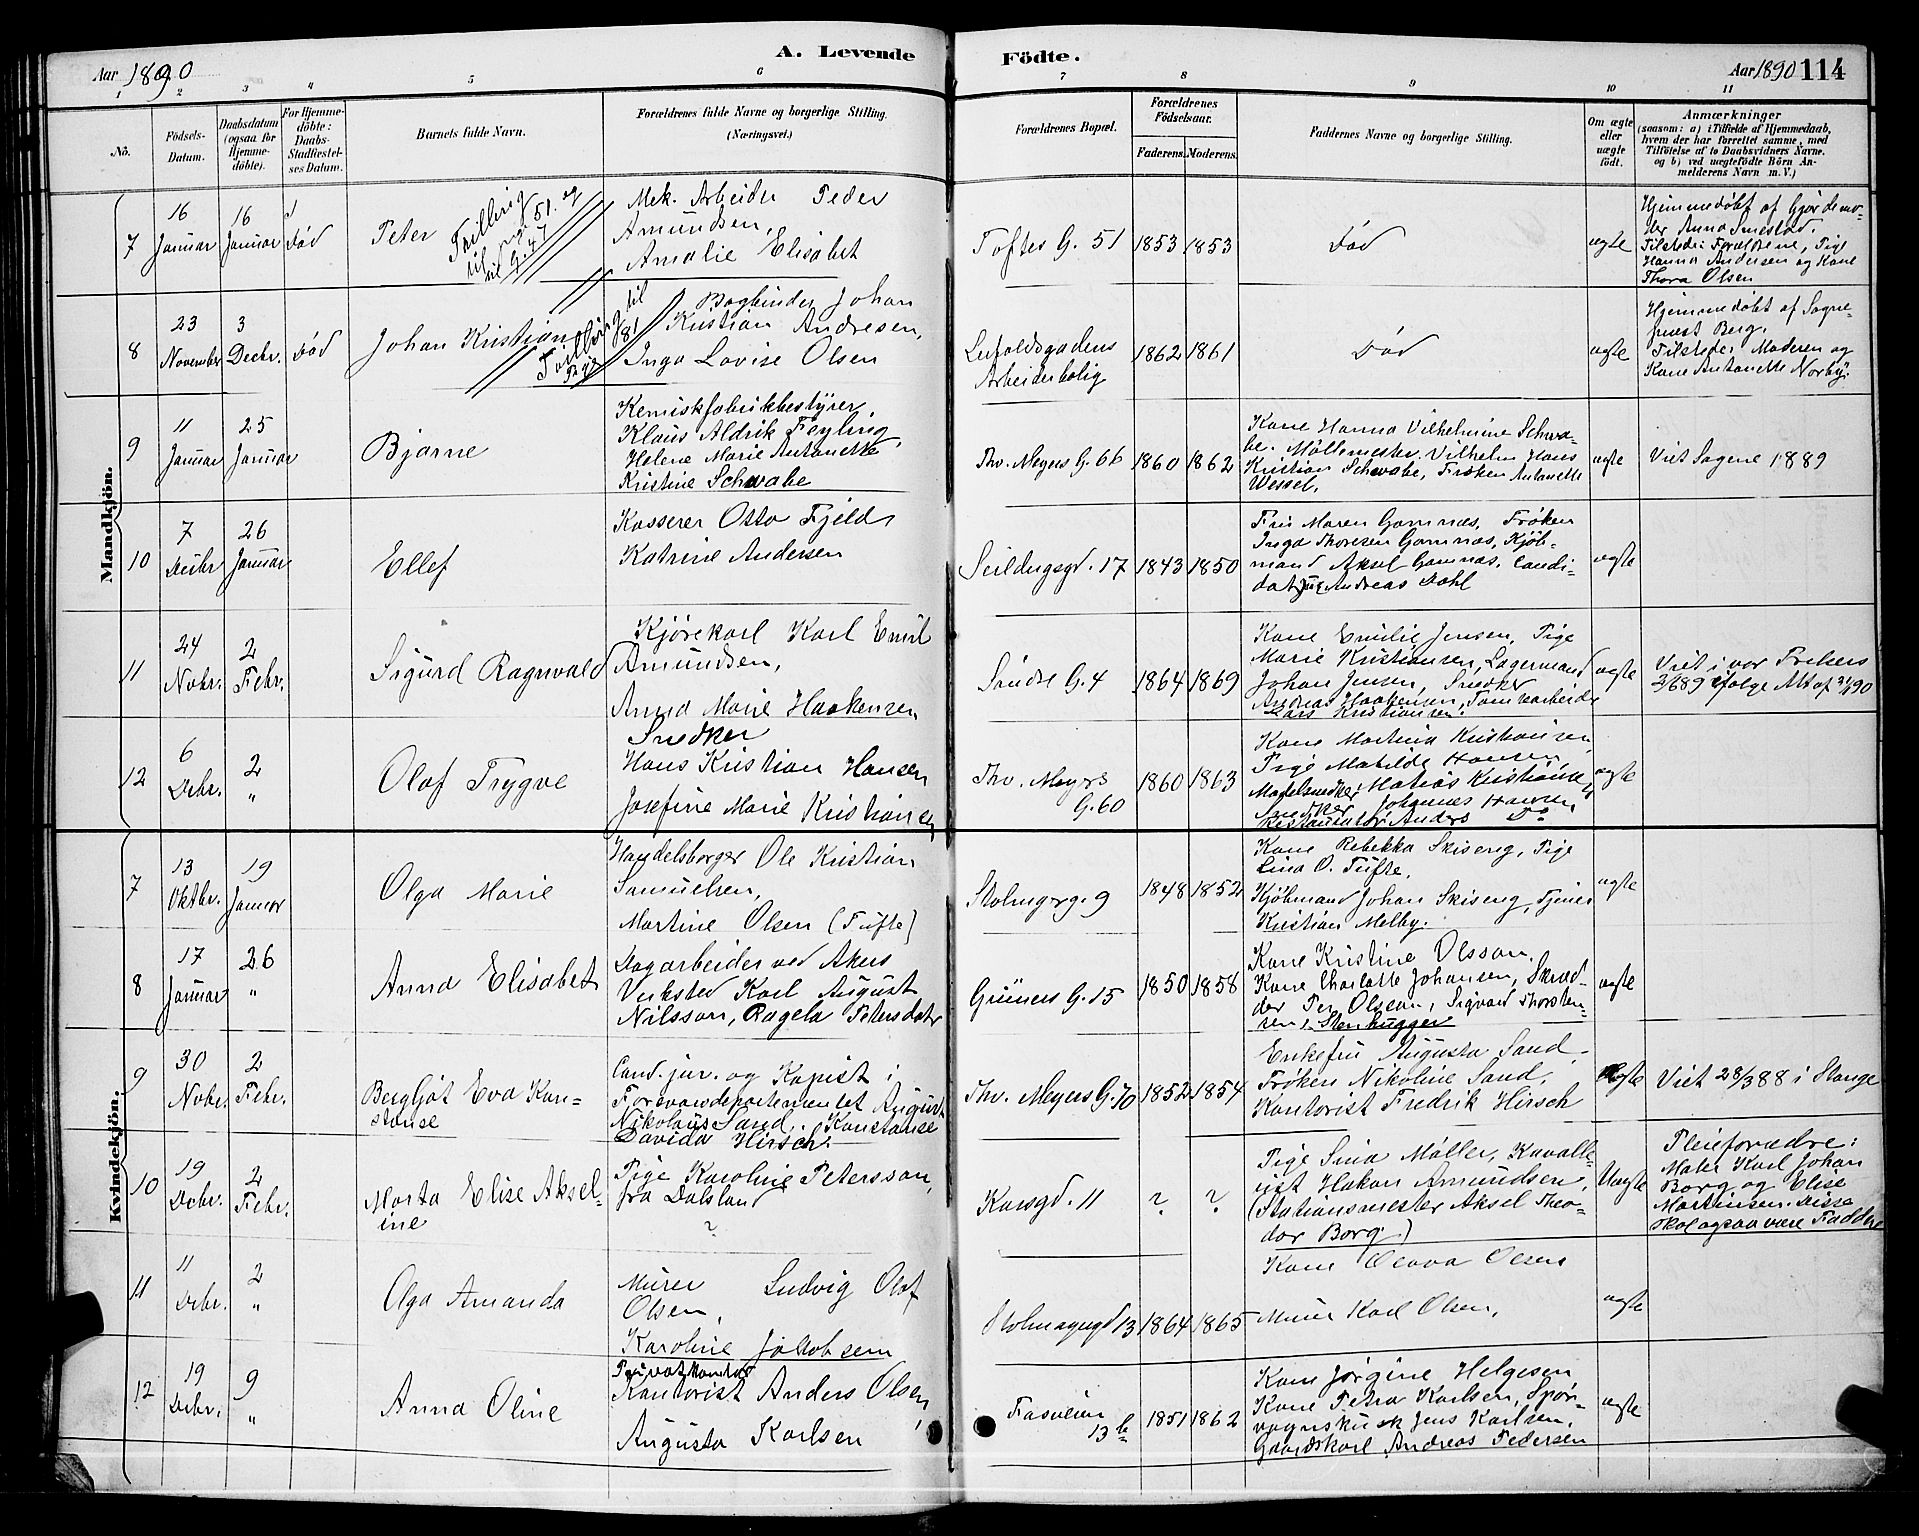 A. Levende Födte.
Aar 1890
Aar 1890 114
1 2 3 4 5 6 7 8 9 10 11
No.
Födsels-Datum.
Daabsdatum (ogsaa for Hjemmedöbte).
For Hjemmedöbte: Daabs-Stadfæstelses Datum.
Barnets fulde Navn.
Forældrenes fulde Navne og borgerlige Stilling. (Næringsvei.)
Forældrenes Bopæl.
Forældrenes Födselsaar.
Faderens. Moderens.
Faddernes Navne og borgerlige Stilling.
Om ægte eller uægte födt.
Anmærkninger
(saasom: a) i Tilfælde af Hjemmedaab, hvem der har forrettet samme, med Tilföielse af to Daabsvidners Navne. og b) ved uægtefödte Börn Anmelderens Navn m. V.)
Mandkjön.
7
16 Januar
16 Januar
Død
Peter
Mek. Arbeider Peder
Amundsen,
Amalie Elisabet
Toftes G. 51
1853 1853
Død
ægte
Hjemmedøbt af Gjordemo-
der Anna Snestad.
Tilstede: Forældrene, Pige
Hanna Andersen og Kone
Thora Olsen
8
23 November
3 Decbr.
Død
Johan Kristian
Bogbinder Johan
Kristian Andresen,
Inga Lovise Olsen
Arbeiderbolig
1862 1861
Død
ægte
Hjemmedøbt af Sogne-
prest Berg.
Tilstede: Moderen og
Kone Antonette Norby.
9
11 Januar
25 Januar
Bjarne
Kemiskfabrikbestyrer,
Klaus Aldrik Feyling,
Helene Marie Antonette
Kristine Schwabe
Thv. Meyers G. 66
1860 1862
Kone Hanna Vilhelmine Schwa-
be. Møllemester Vilhelm Hans
Kristian Schwabe, Frøken Antonette
Wessel,
ægte
Viet Sagene 1889
10
7 Decbr
26 Januar
Ellef
Kasserer Otto Fjeld,
Katrine Andersen
Seildugsgd. 17
1843 1850
Fru Maren Gamnæs, Frøken
Inga Thoresen Gamnæs, Kjøb-
mand Aksel Gamnæs, Candi-
dat jur Andreas Dahl
ægte
11
24 Nobr.
2 Febr.
Sigurd Ragnvald
Kjørekarl Karl Emil
Amundsen,
Anna Marie Haakensen
Søndre G. 4
1864 1869
Kone Emilie Jensen, Pige
Marie Kristiansen, Lagermand
Johan Jensen, Snedker
Andreas Haakensen, Tomtearbeider
Lars Kristiansen.
ægte
Viet i vor Frelsers
12
6 Debr.
2 "
Olaf Trygve
Snedker
Hans Kristian Hansen
Josefine Marie Kristiansen
Thv. Meyers
G. 60
1860 1863
Kone Martina Kristiansen,
Pige Matilde Hansen
Modelsnedker Matias Kristiansen,
Snedker Johannes Hansen
Anders Do
ægte
Kvindekjön.
7
13 Oktbr.
19 Januar
Olga Marie
Handelsborger Ole Kristian
Samuelsen,
Martine Olsen (Tufte)
Stolmagerg. 9
1848 1852
Kone Rebekka Skiseng, Pige
Lina O. Tufte,
Kjøbmand Johan Skiseng, Tjener
Kristian Melby.
ægte
8
17 Januar
26 "
Anna Elisabet
Dagarbeider ved Akers
Verksted Karl August
Nilsson, Ragela Petersdatr
Grüners G. 15
1850 1858
Kone Kristine Olsson,
Kone Charlotte Johansen, Skræd-
der Per Olsson, Sigvard Thorsten-
sen, Stenhugger
ægte
9
30 Nobr.
2 Febr.
Bergljot Eva Kon-
stanse
Cand. jur. og Kopist i
Forsvarsdepartementet August
Nikolaus Sand, Konstanse
Davida Hirsch.
Thv. Meyers G. 70
1852 1854
Enkefru Augusta Sand,
Frøken Nikoline Sand,
Kontorist Fredrik Hirsch
ægte
Viet 28/3 88 i Stange
10
19 Debr.
2 Febr.
Marta Elise Aksel-
ine
Pige Karoline Petersson,
fra Dalsland
?
Korsgd. 11
? ?
Pige Sina Møller, Kavalle-
rist Hakon Amundsen,
(Stationsmester Aksel Theo-
dor Borg)
Uægte
Pleieforældre:
Maler Karl Johan
Borg og Elise
Martinsen. Disse
skal ogsaa være Faddere
11
11 Debr.
2 "
Olga Amanda
Murer Ludvig Olaf
Olsen,
Karoline Jakobsen
Stolmagergd 13
1864 1865
Kone Olava Olsen
Murer Karl Olsen,
ægte
12
19 Debr.
9 "
Anna Oline
Kontorist Anders Olsen,
Augusta Karlsen
Fasveien
13 b
1851 1862
Kone Jørgine Helgesen,
Kone Petra Karlsen, Spor-
vognskusk Jens Karlsen,
Gaardskarl Andreas Pedersen
ægte